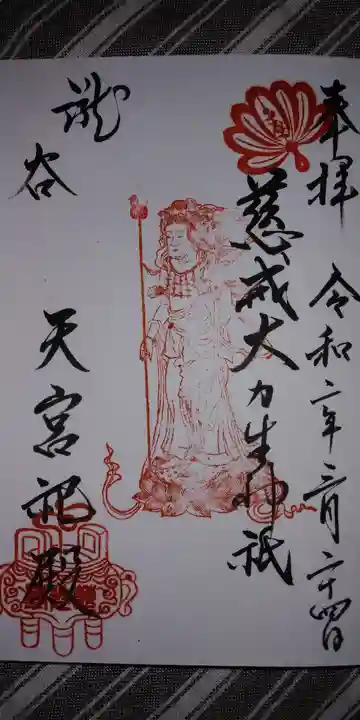 奉拝 令和二年三月二十四日
慈戒大力生神祇
龍谷
天宮祀殿